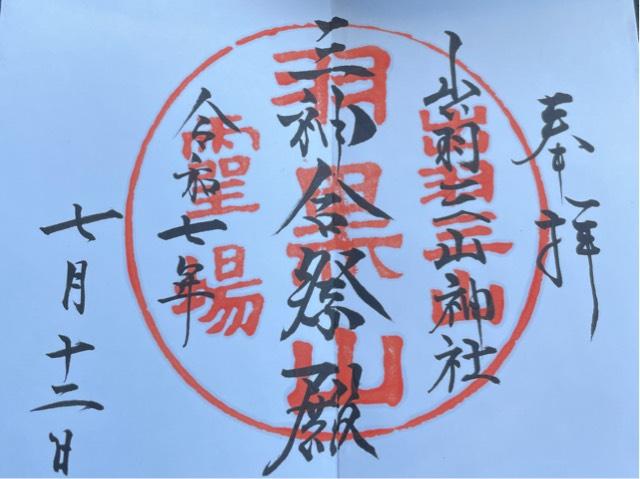 奉拝
出羽三山神社
三神合祭殿
令和七年
七月十二日
出羽三山
羽黒山
霊場